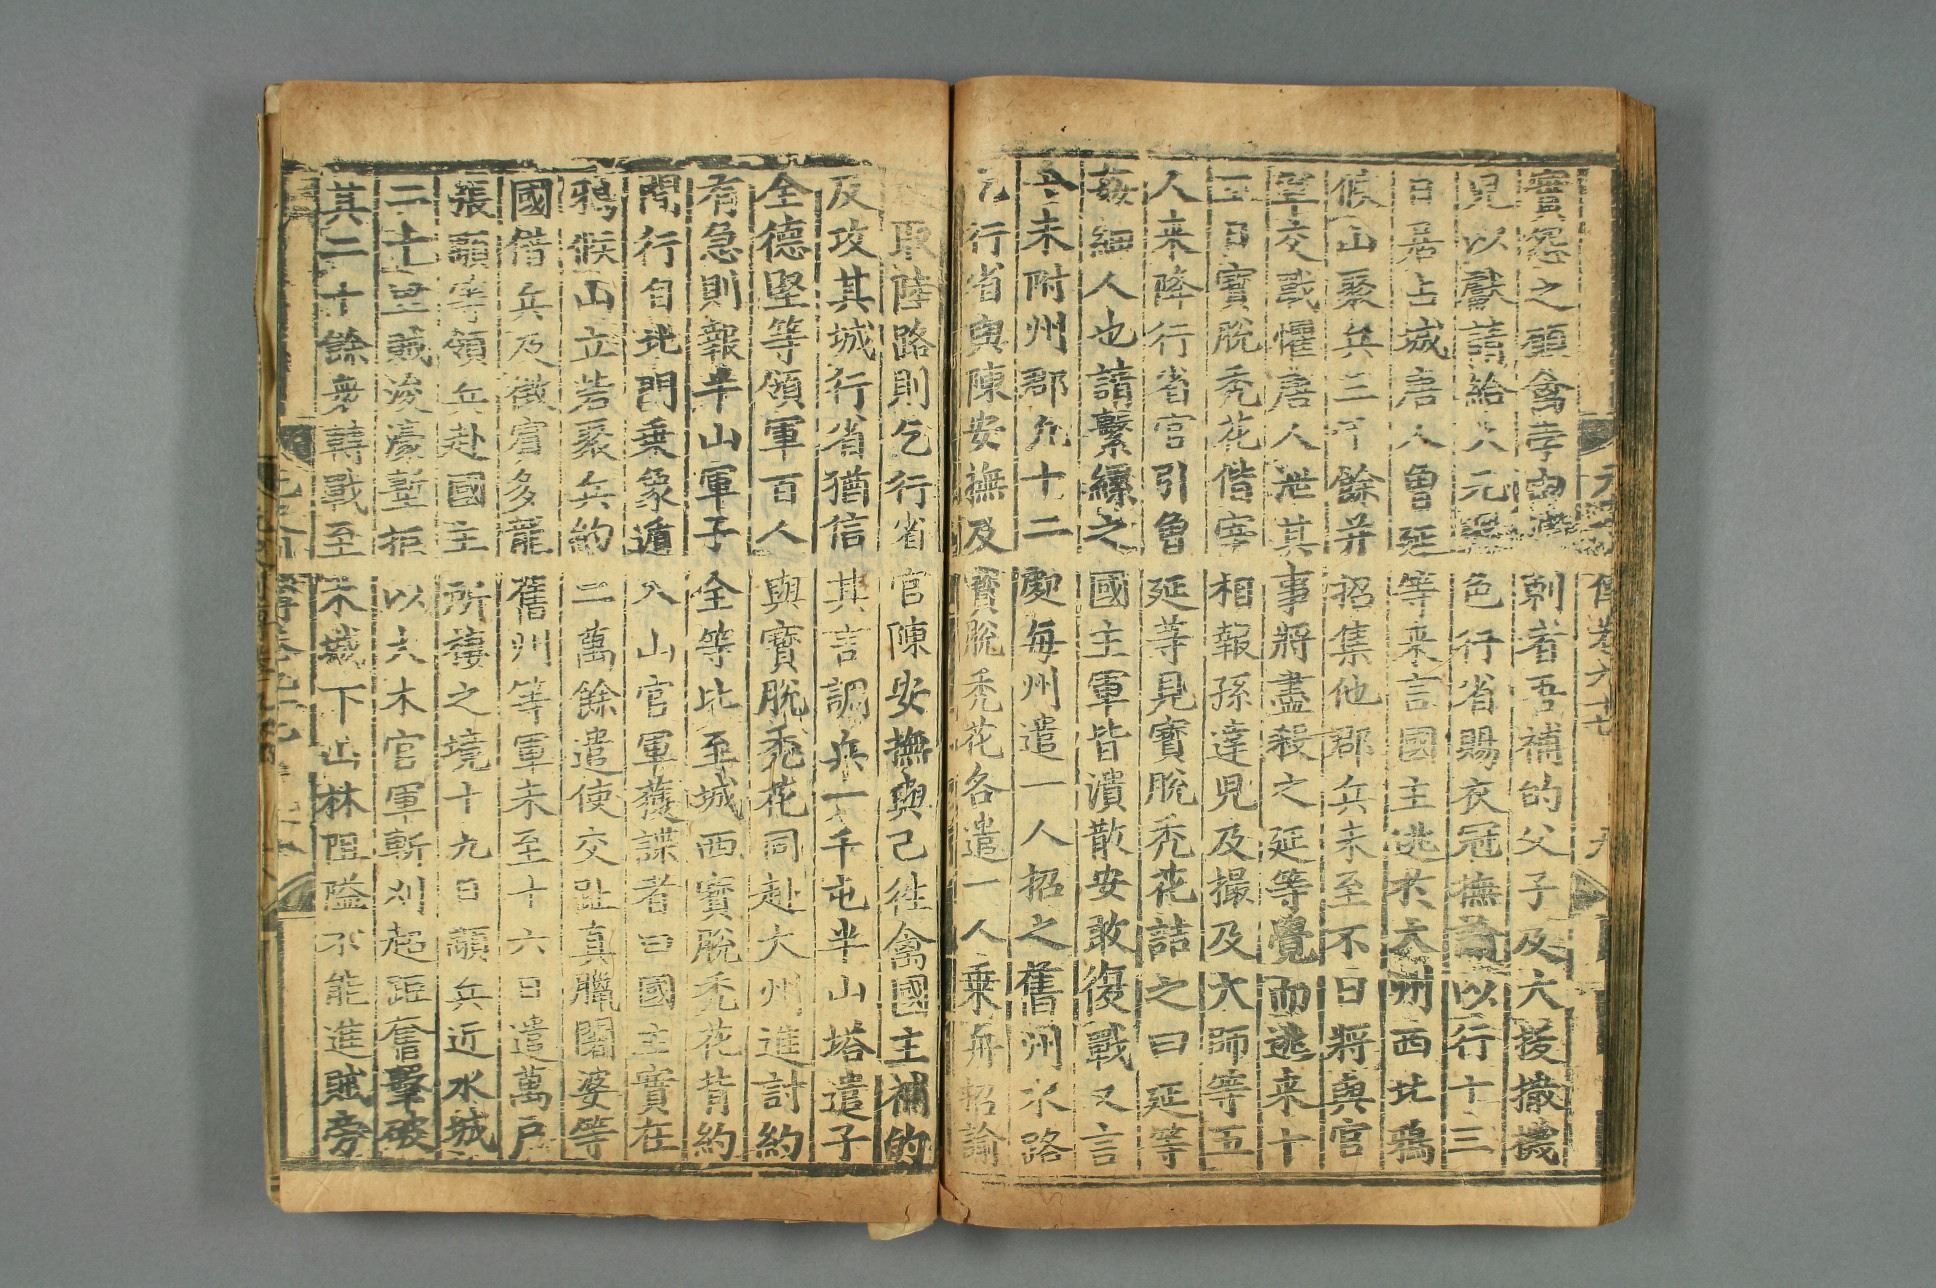 元史 傳卷九十七 九
寶怨之願禽孛由補剌者吾補的父子及大拔撒機
兒以獻請給大元服色行省賜衣冠撫諭以行十三
日居占城唐人曾延等来言國主逃於大州西北鴉
候山聚兵三千餘并招集他郡兵未至不日將與官
軍交戰懼唐人泄其事將盡殺之延等覺而逃来十
五日寶脫禿花偕宰相報孫達児及撮及大師等五
人来降行省官引曾延等見寶脫禿花詰之曰延等
姦細人也請繫縲之國主軍皆潰散安敢復戰又言
今未附州郡凡十二處每州遣一人招之舊州水路
乞行省與陳安撫及寶脫禿花各遣一人乘舟招諭
取陸路則乞行省官陳安撫與己往禽國主補的
及攻其城行省猶信其言調兵一千屯半山塔遣子
全德堅等領軍百人與寶脫禿花同赴大州進討約
有急則報半山軍子全等比至城西寶脫禿花背約
間行自北門乗象遁入山官軍獲諜者曰國主實在
鴉候山立砦聚兵約二萬餘遣使交趾真臘闍婆等
國借兵及徵賓多龍舊州等軍未至十六日遣萬戶
張顒等領兵赴國主所棲之境十九日顒兵近水城
二十里賊浚濠塹拒以大木官軍斬刈超距奮擊破
其二千餘衆轉戰至木城下山林阻隘不能進賊旁